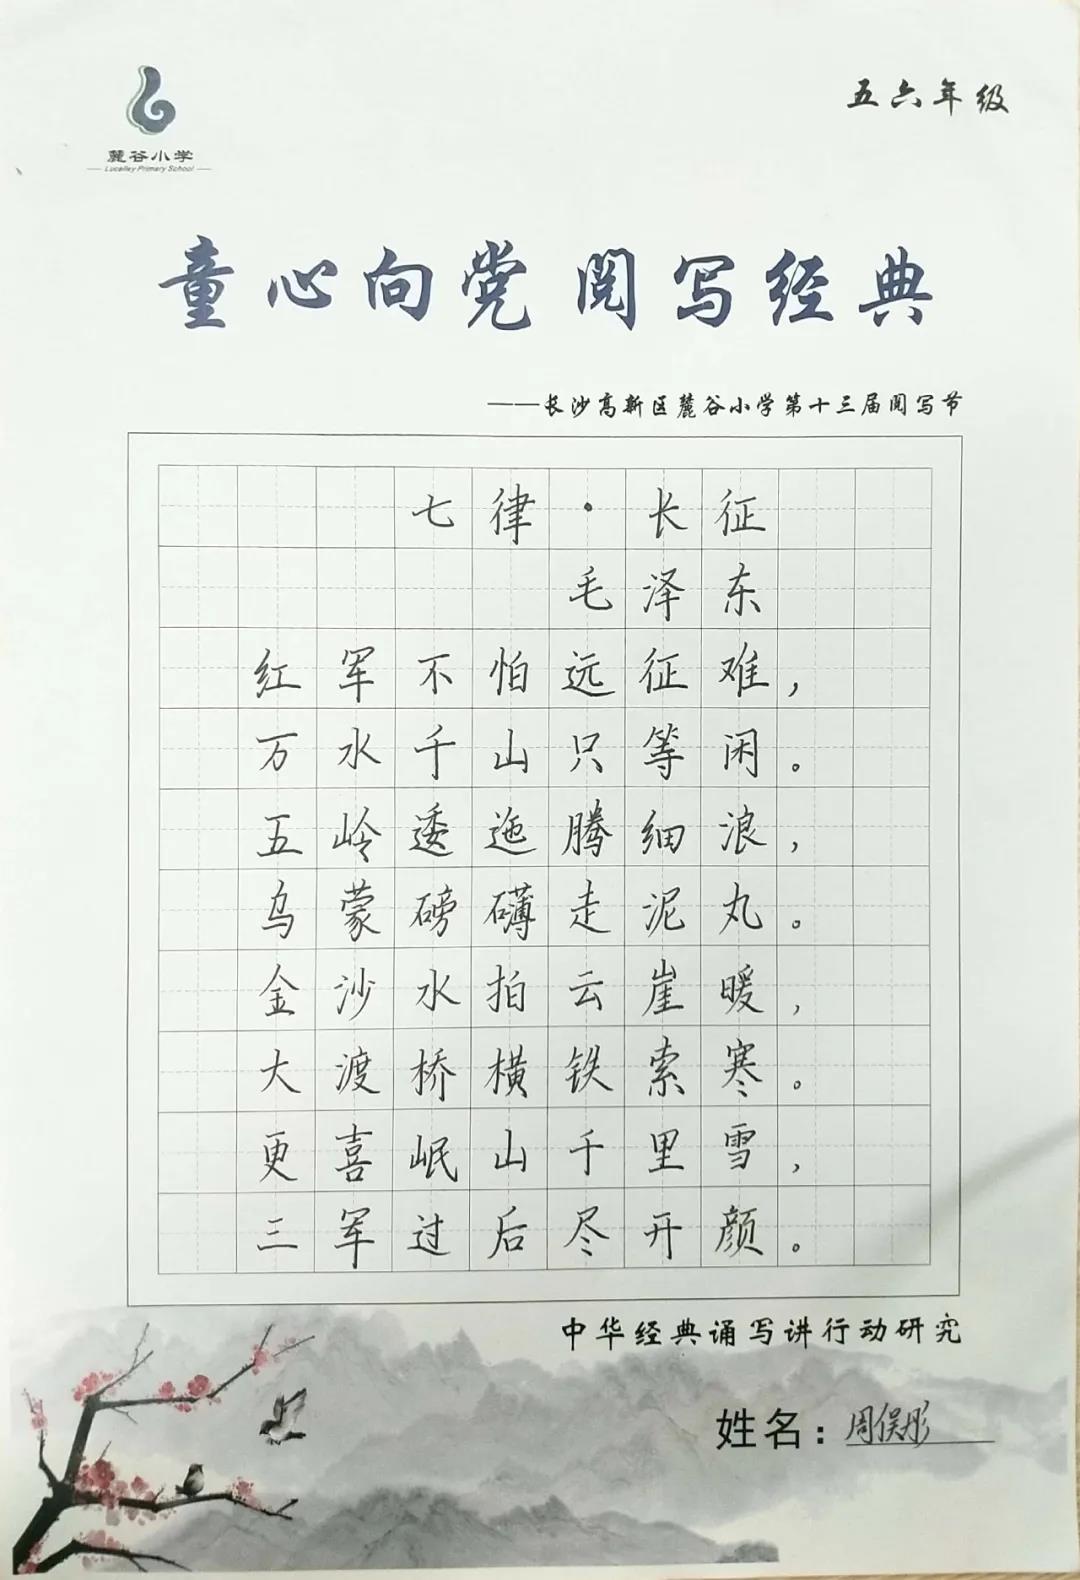 五六年级
麓谷小学
Lucalley Primary School
童心向党 阅写经典
——长沙高新区麓谷小学第十三届阅写节
七律·长征
毛泽东
红军不怕远征难，
万水千山只等闲。
五岭逶迤腾细浪，
乌蒙磅礴走泥丸。
金沙水拍云崖暖，
大渡桥横铁索寒。
更喜岷山千里雪，
三军过后尽开颜。
中华经典诵写讲行动研究
姓名：周俣彤